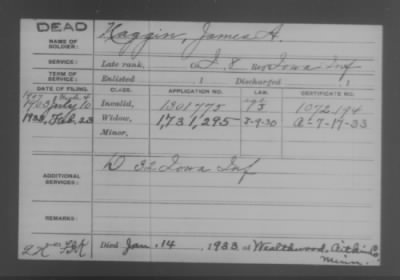 DEAD
NAME OF SOLDIER: Haggin, James A.
SERVICE: Late rank, Co I, 8 Reg Iowa Inf
TERM OF SERVICE: Enlisted , 1 Discharged , 1
DATE OF FILING. CLASS. APPLICATION NO. LAW. CERTIFICATE NO.
1903 July 10 Invalid, 1301775 1072,194
1933, Feb, 23 Widow, 1,731,295 5-9-30 A-7-17-33
Minor,
ADDITIONAL SERVICES: D 32 Iowa Inf
REMARKS:
Died Jan. 14, 1933 at Wealthwood, Aitkin Co,
Minn.